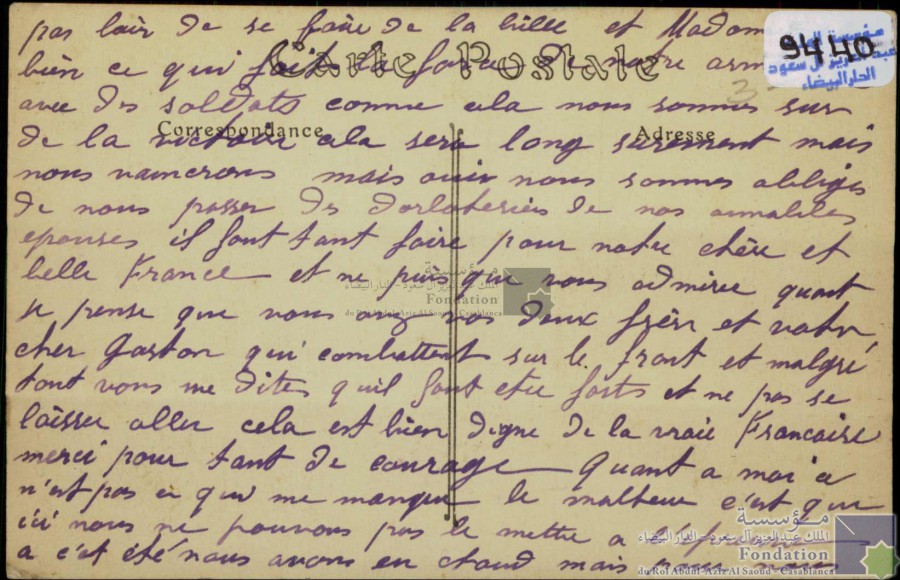 pas l'air de se faire de la bille et Madame
9440
Carte Postale
bien ce qui fait la force de notre arm
avec des soldats comme cela nous sommes sur
Correspondance
Adresse
de la victoire cela sera long surement mais
nous vaincrons mais nous sommes obligés
de nous passer des dorloteries de nos aimables
epouses il faut tant faire pour notre chère et
belle France et ne puis que vous admirer quant
je pense que vous avez vos deux frères et votre
cher Gaston qui combattent sur le front et malgré
tout vous me dites qu'il faut etre forts et ne pas se
laisser aller cela est bien digne de la vraie Francaise
merci pour tant de courage Quant a moi
n'est pas ce qui me manque le malheur c'est que
ici nous ne pouvons pas le mettre a l'epreuve
c'est été nous avons eu chaud mais nous
مؤسسة
الملك عبد العزيز آل سعود - الدار البيضاء
Fondation
du Roi Abdul-Aziz Al Saoud - Casablanca